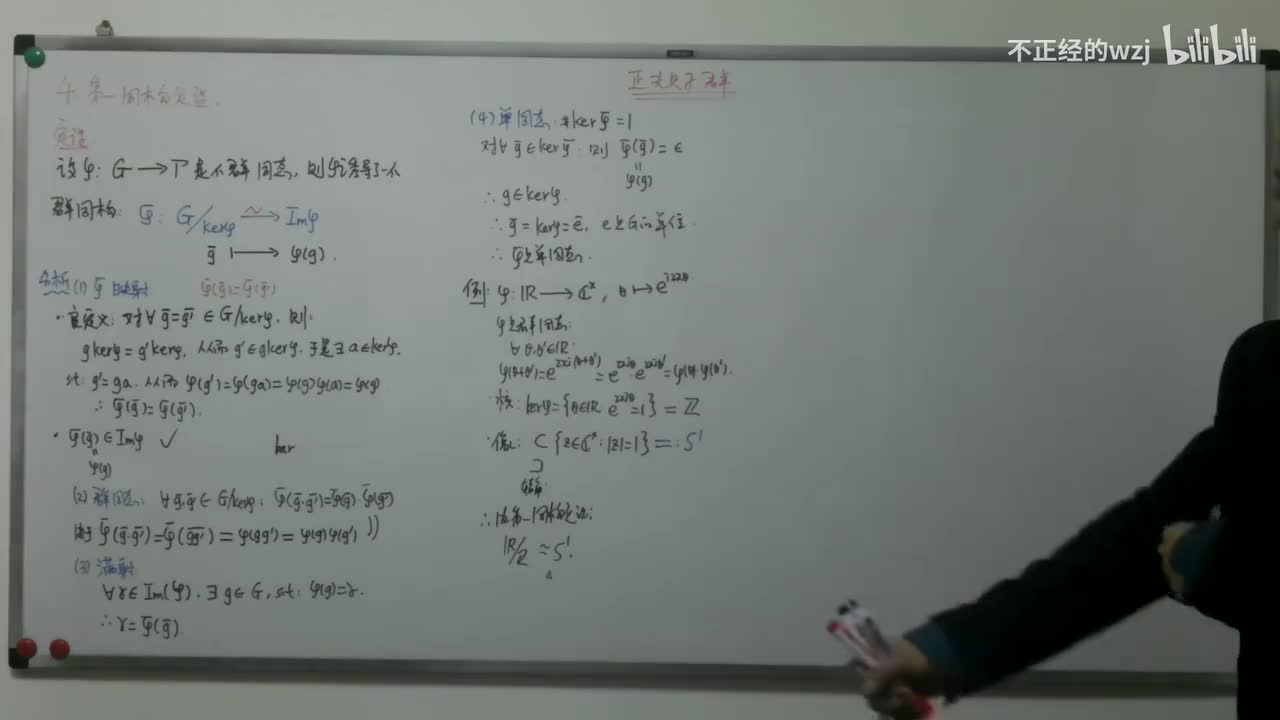 不正经的wzj bilibili
正式史子群
4. 第一同构定理.
定理
设φ: G ⟶ Γ 是个群同态, 则φ诱导了一个
群同构: φ̄: G/kerφ ⟶~ Imφ
ḡ ⟼ φ(g).
分析 (1) φ̄ 映射 φ̄(ḡ)=φ̄(ḡ')
· 良定义: 对∀ ḡ=ḡ' ∈ G/kerφ, 则:
gkerφ=g'kerφ, 从而 g'∈gkerφ. 于是∃a∈kerφ,
st: g'=ga. 从而 φ(g')=φ(ga)=φ(g)φ(a)=φ(g)
∴ φ̄(ḡ)=φ̄(ḡ').
· φ̄(ḡ)∈Imφ ✓ bar
=
φ(g)
(2) 群同态: ∀ ḡ,ḡ'∈ G/kerφ: φ̄(ḡ·ḡ')=φ̄(ḡ)·φ̄(ḡ')
由于 φ̄(ḡ·ḡ')=φ̄(gg')=φ(gg')=φ(g)φ(g')
(3) 满射
∀γ∈Im(φ), ∃g∈G, st: φ(g)=γ.
∴ γ=φ̄(ḡ)
(4) 单同态: #kerφ̄=1
对∀ ḡ∈kerφ̄. 则 φ̄(ḡ)=ε
=
φ(g)
∴ g∈kerφ.
∴ ḡ=kerφ=ē, e是G的单位.
∴ φ̄是单同态.
例: φ: ℝ ⟶ ℂ^×, θ ↦ e^{2πiθ}
φ是群同态:
∀ θ,θ'∈ℝ:
φ(θ+θ')=e^{2πi(θ+θ')}=e^{2πiθ}·e^{2πiθ'}=φ(θ)·φ(θ').
核: kerφ={θ∈ℝ: e^{2πiθ}=1}=ℤ
像: ⊂{z∈ℂ^×: |z|=1}=:S¹
⊃
∴ 由第一同构定理:
ℝ/ℤ ≈ S¹.